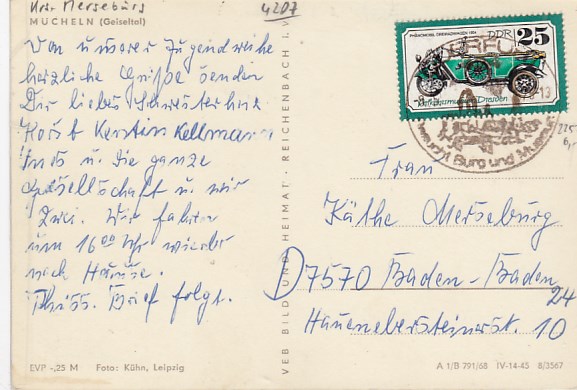 Krs. Merseburg
4207
MÜCHELN (Geiseltal)
Von unserer Jugendweihe
herzliche Grüße senden
Dir liebes Schwesterherz
Horst Kerstin Kellmann
Ines u. die ganze
Gesellschaft u. wir
Zwei. Wir fahren
um 16⁰⁰ Uhr wieder
nach Hause.
Tschüss. Brief folgt.
EVP -,25 M Foto: Kühn, Leipzig
VEB BILD UND HEIMAT · REICHENBACH I. V.
PHÄNOMOBIL DREIRADWAGEN 1924
DDR 25
Verkehrsmuseum Dresden
ERFU
-13
Burg und Museum
Frau
Käthe Merseburg
D7570 Baden-Baden
24
Hauenebersteinerst. 10
A 1/B 791/68 IV-14-45 8/3567